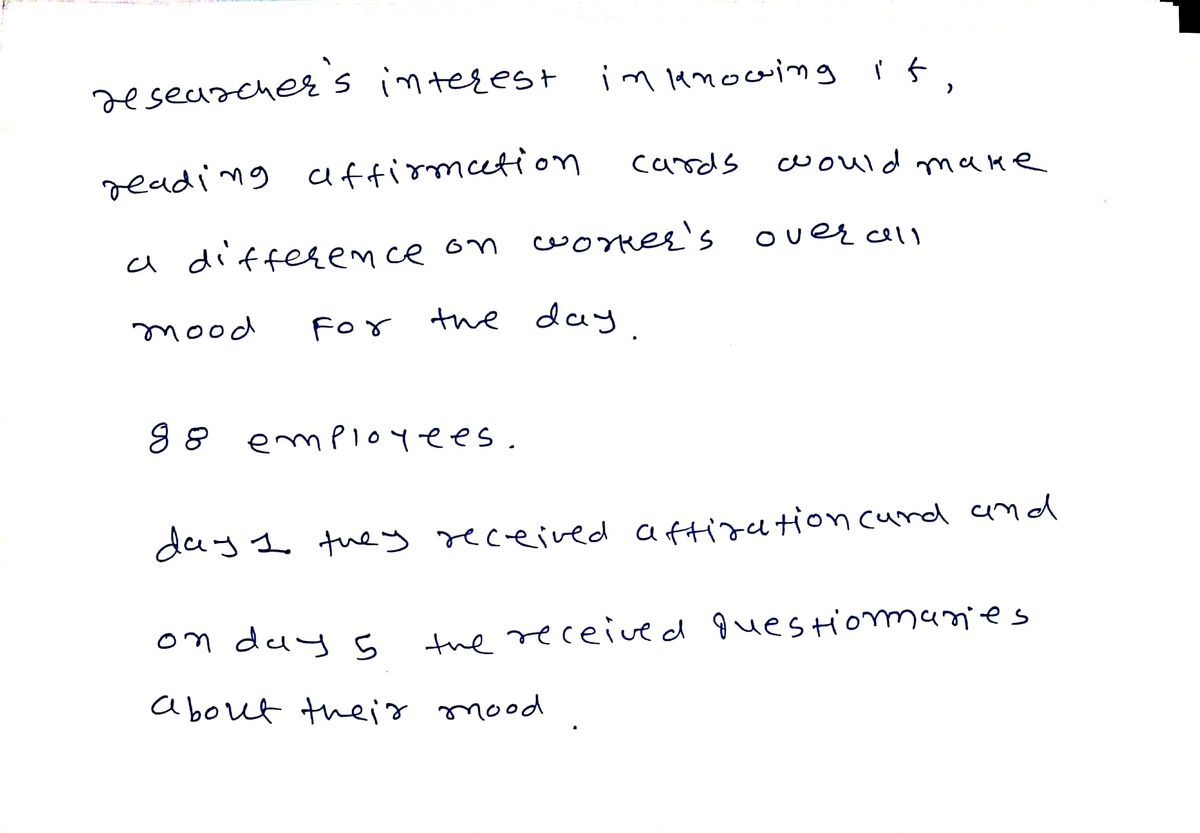 researcher's interest in knowing if,
reading affirmation cards would make
a difference on worker's overall
mood For the day.
98 employees.
day 1 they received affiration card and
on day 5 the received questionnaries
about their mood.